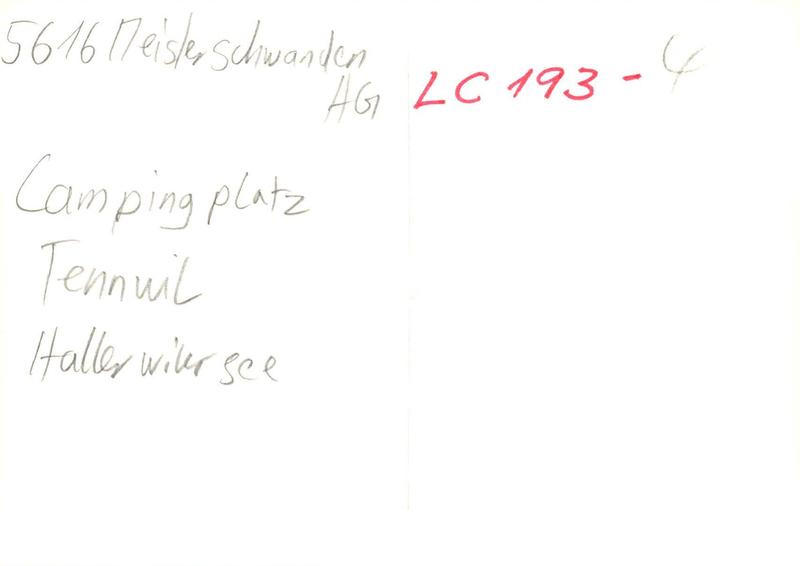 5616 Meisterschwanden
AG
LC 193-4
Campingplatz
Tennwil
Hallerwilersee